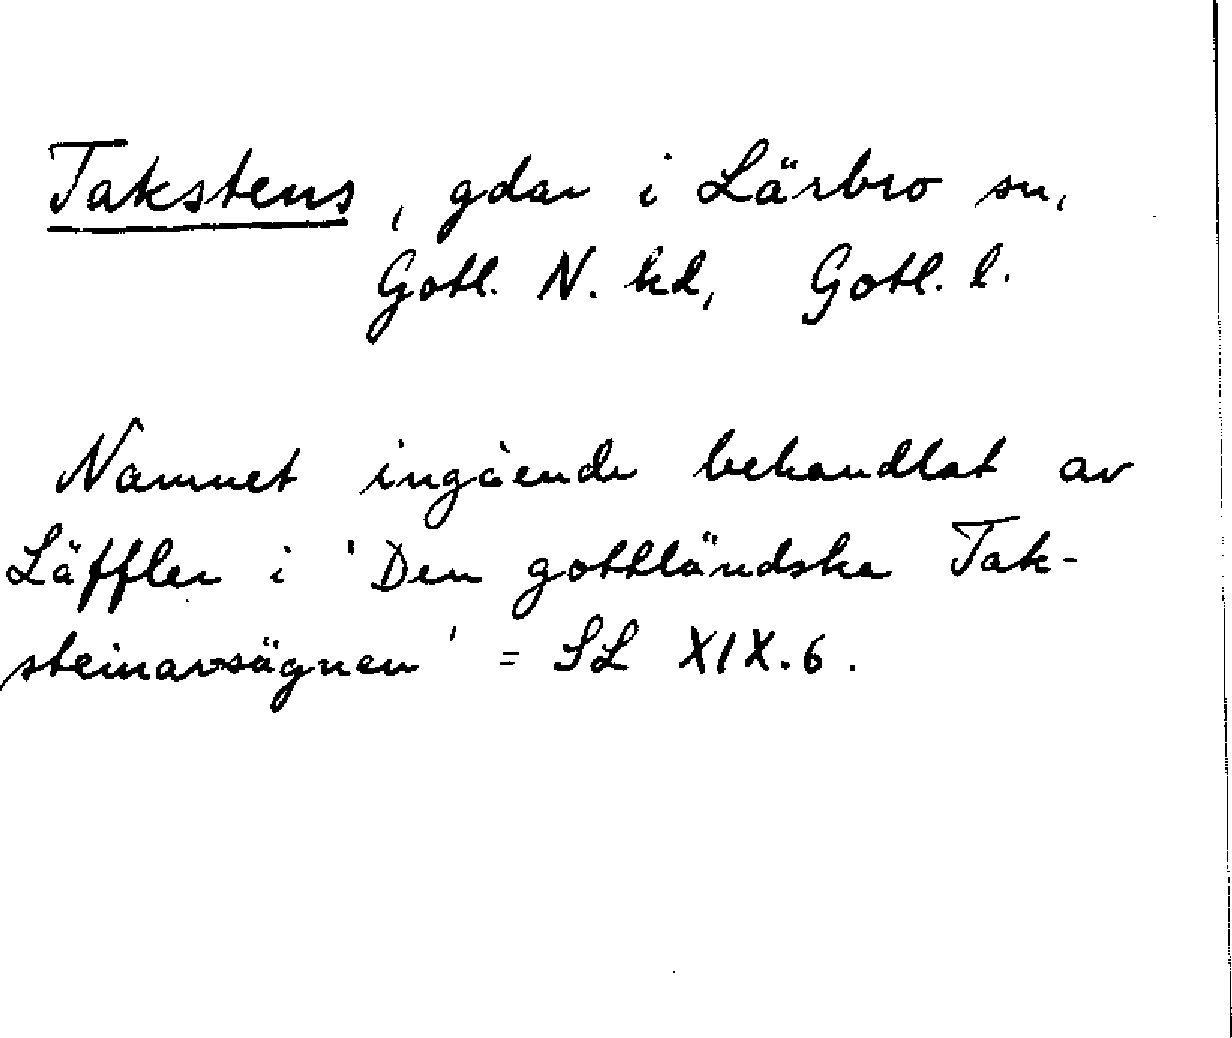 Takstens, gdar i Lärbro sn,
Gotl. N. hd, Gotl. l.
Namnet ingående behandlat av
Läffler i 'Den gottländska Tak-
steinarsägnen' = SL XIX.6.